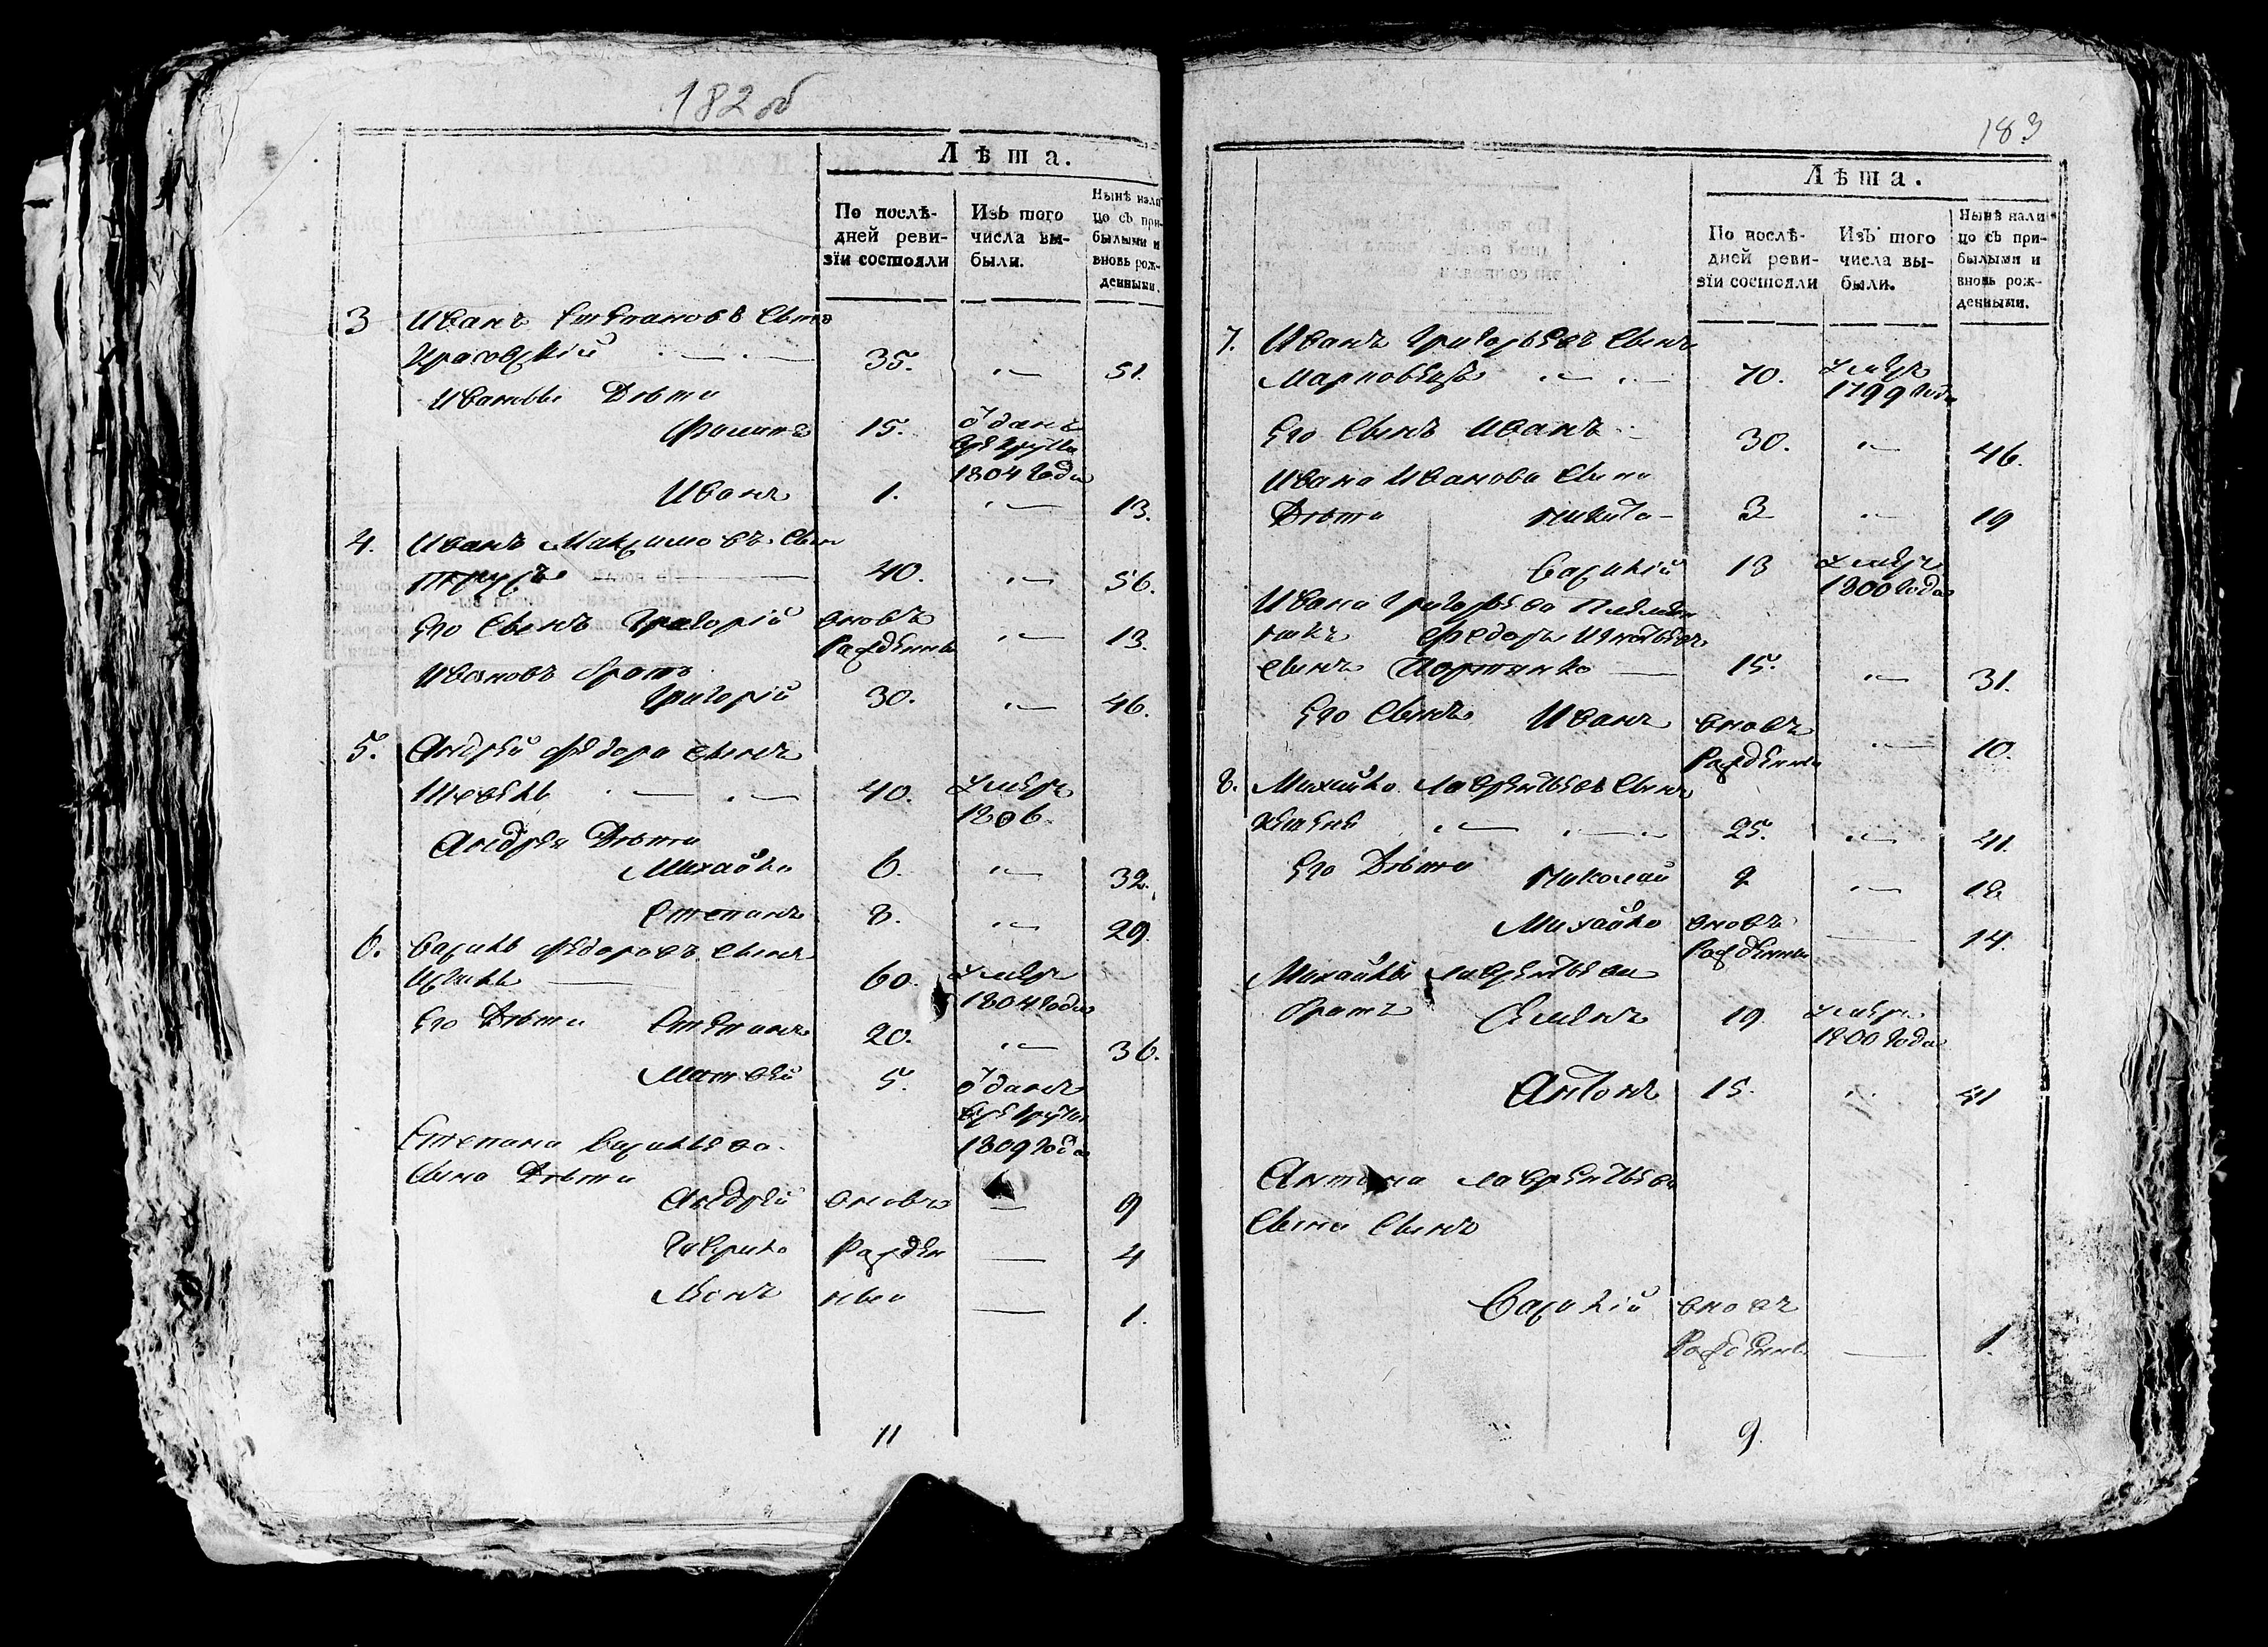 182 об
Лѣта.
По послѣ-
дней реви-
зїи состояли
Изъ того
числа вы-
были.
Нынѣ нали
цо съ при-
былыми и
вновь рож-
денными.
3 Иванъ Степановъ Сынъ
35. 51.
Ивановы Дѣти
Филипъ 15. Ѿданъ
Иванъ 1. 1804 года 13.
4. Иванъ Максимовъ Сынъ
40. 56.
Его Сынъ Григорій вновь
Рожденны 13.
Ивановъ братъ
Григорій 30. 46.
5. Андрей Федора сынъ
Шевель 40. умеръ
1806.
Андрея Дѣти
Михайло 6. 32.
Степанъ 8. 29.
6. Василь Федоровъ сынъ
60. умеръ
1804 года
Его Дѣти Степанъ 20. 36.
Матвей 5. Ѿданъ
Степана Васильева 1809 года
Сына Дѣти
Андрей вновь 9
Гаврило Рожден 4
ныи 1.
11
183
Лѣта.
По послѣ-
дней реви-
зїи состояли
Изъ того
числа вы-
были.
Нынѣ нали
цо съ при-
былыми и
вновь рож-
денными.
7. Иванъ Григорьевъ Сынъ
70. умеръ
1799 года
Его Сынъ Иванъ 30. 46.
Ивана Иванова Сына
Дѣти Никита 3 19
Василій 13 умеръ
1800 года
Ивана Григорьева Племян
никъ Федоръ Игнатьевъ
сынъ 15. 31.
Его Сынъ Иванъ вновь
Рожденны 10.
8. Михайло Лаврентьевъ Сынъ
25. 41.
Его Дѣти Николай 2 18
Михайло вновь
Рожденны 14.
Михайлы Лаврентьева
братъ Семенъ 19 умеръ
1800 года
Антонъ 15. 41
Антона Лаврентьева
Сына Сынъ
Василій вновь
Рожденны 1.
9.